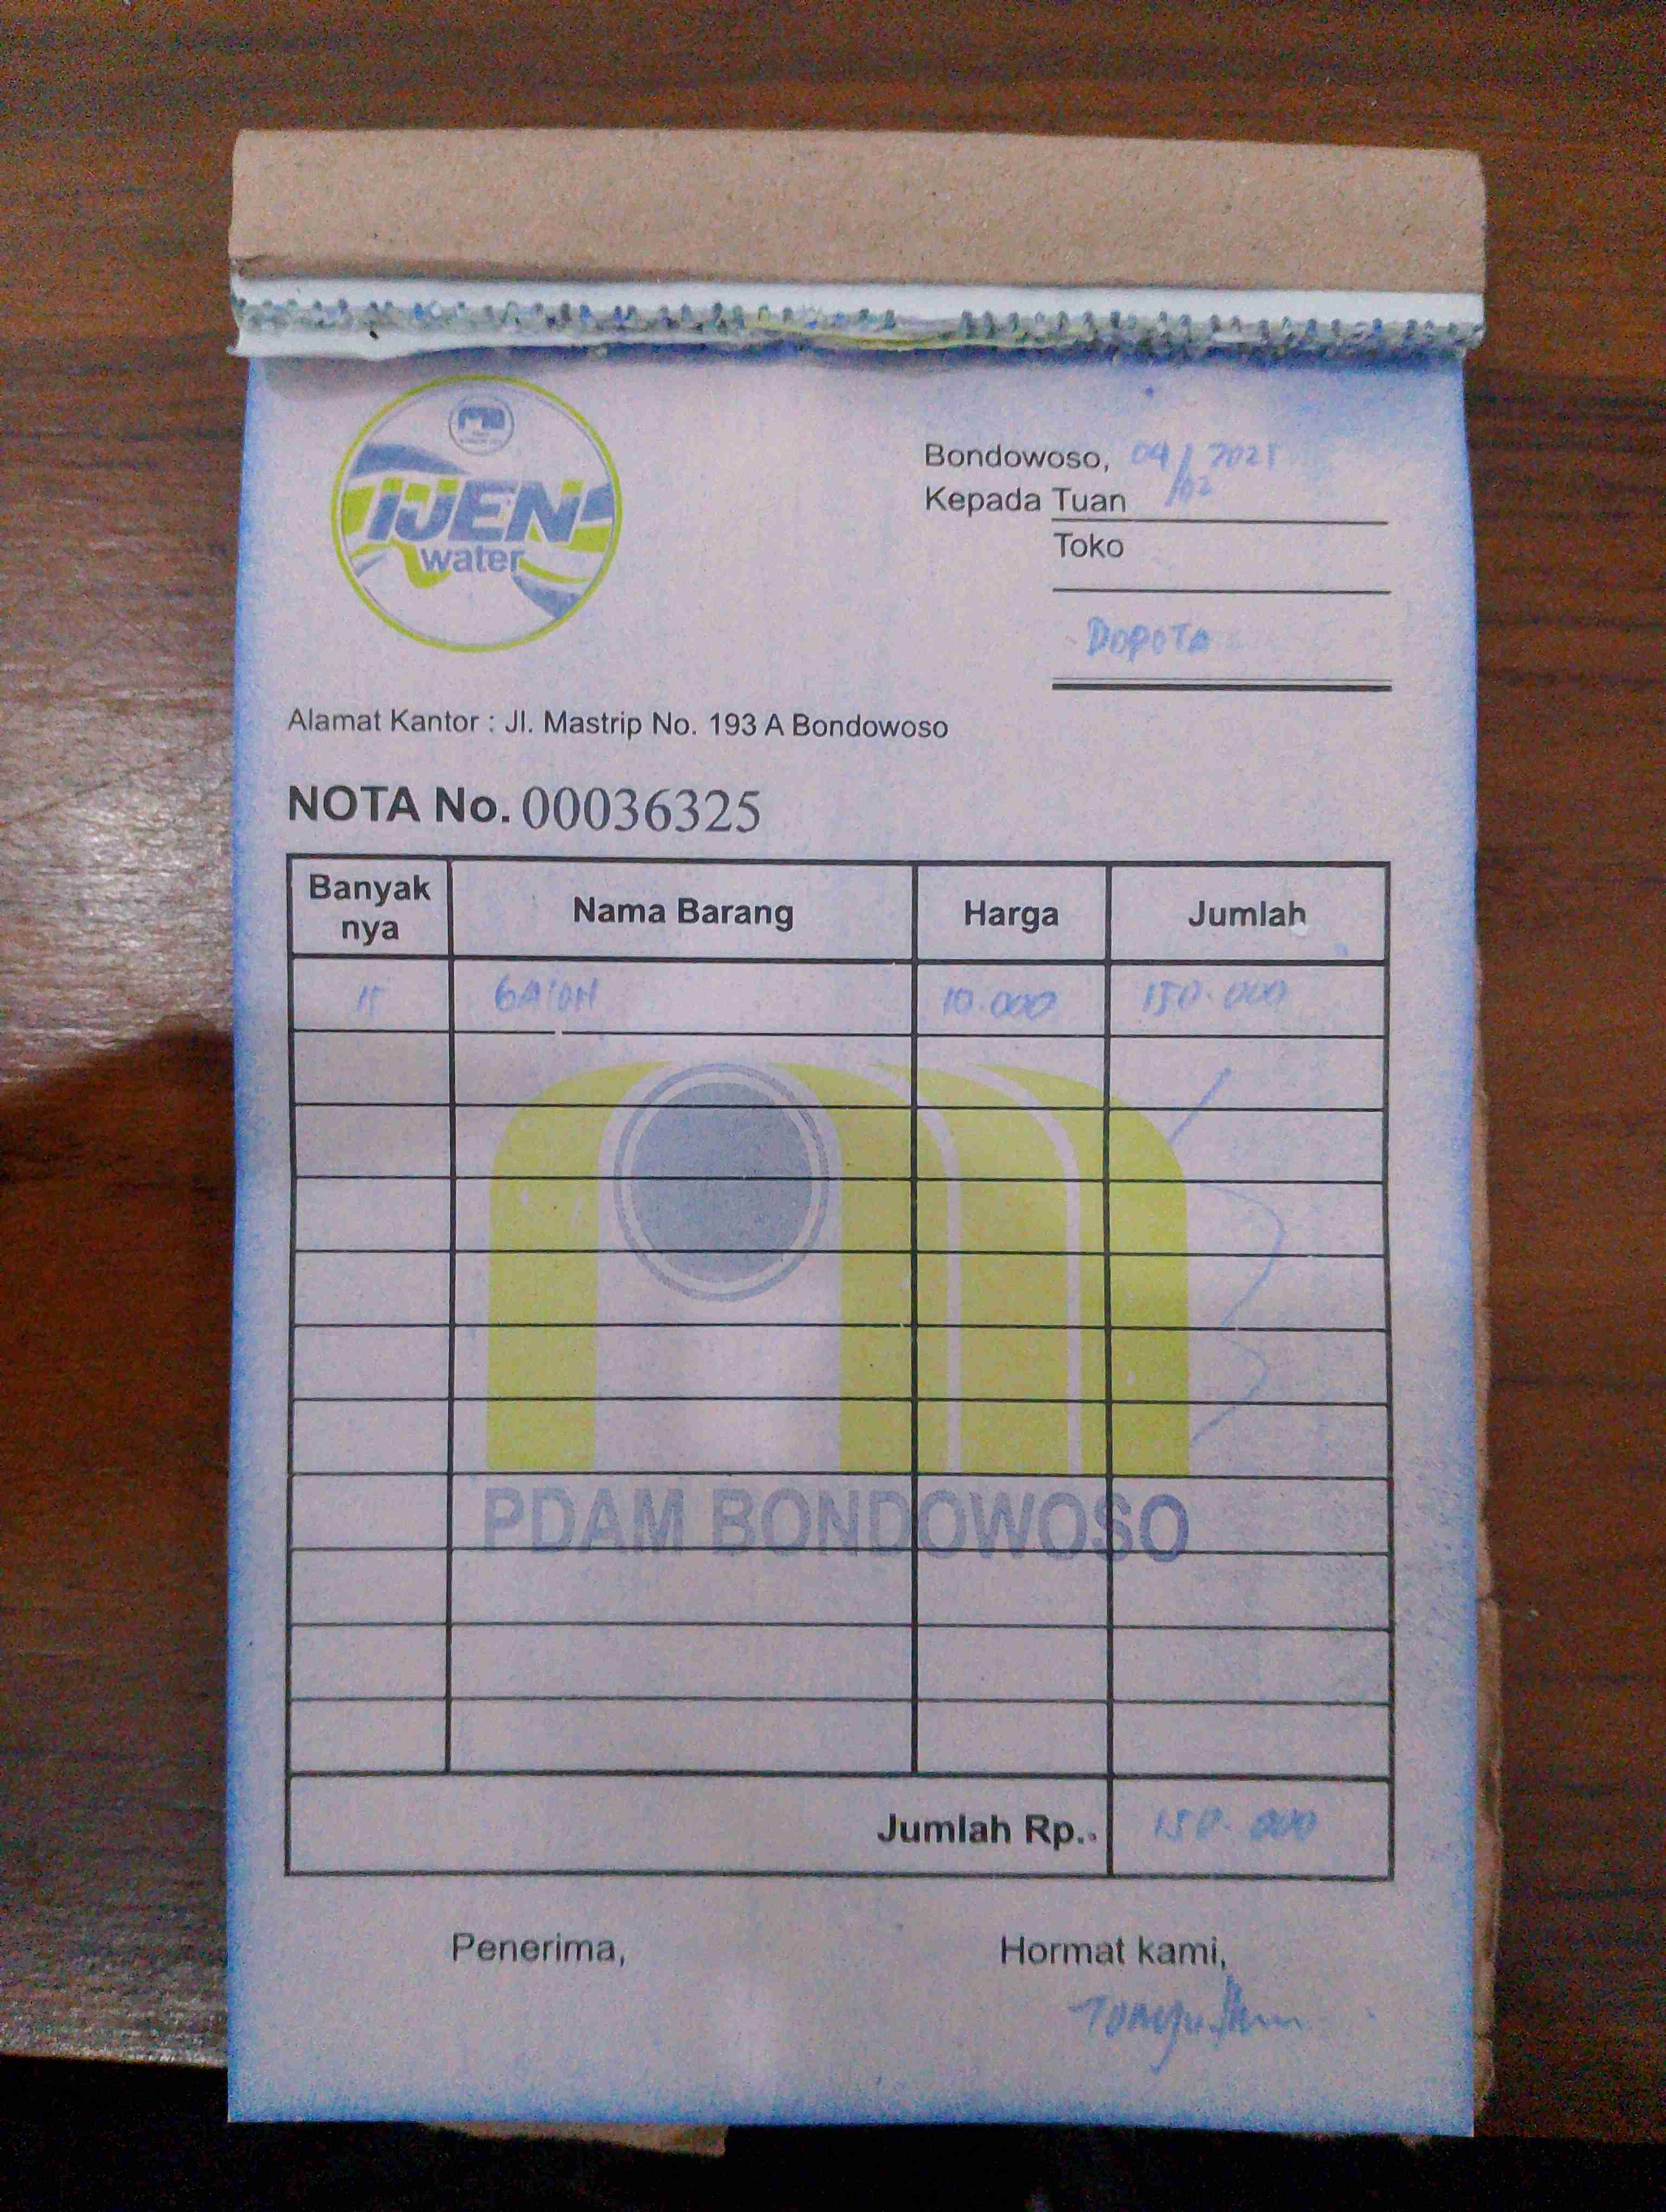 IJEN
water
Bondowoso, 04/02 2025
Kepada Tuan
Toko
DOPOTA
Alamat Kantor : Jl. Mastrip No. 193 A Bondowoso
NOTA No. 00036325
Banyak nya Nama Barang Harga Jumlah
15 GAlON 10.000 150.000
PDAM BONDOWOSO
Jumlah Rp.. 150.000
Penerima, Hormat kami,